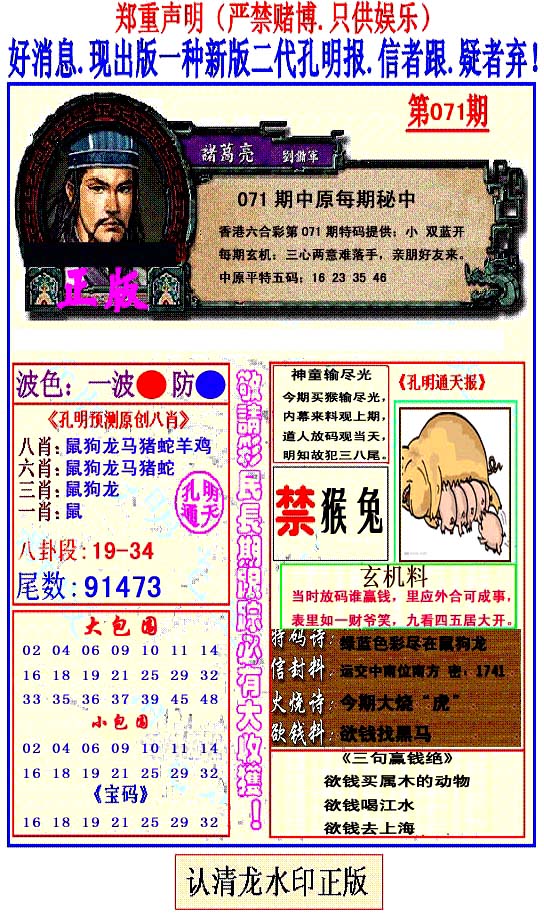 郑重声明（严禁赌博.只供娱乐）
好消息.现出版一种新版二代孔明报.信者跟.疑者弃!
第071期
諸葛亮 劉備軍
071 期中原每期秘中
香港六合彩第 071 期特码提供：小 双蓝开
每期玄机：三心两意难落手，亲朋好友来。
中原平特五码：16 23 35 46
正版
波色：一波 防
《孔明预测原创八肖》
八肖:鼠狗龙马猪蛇羊鸡
六肖:鼠狗龙马猪蛇
三肖:鼠狗龙
一肖:鼠
孔明
通天
八卦段:19-34
尾数:91473
大包围
02 04 06 09 10 11 14
16 18 19 21 25 29 32
33 35 36 37 39 45 48
小包围
02 04 06 09 10 11 14
16 18 19 21 25 29 32
《宝码》
16 18 19 21 25 29 32
敬請彩民長期跟踪必有大收獲！
神童输尽光
今期买猴输尽光，
内幕来料观上期，
道人放码观当天，
明知故犯三八尾。
《孔明通天报》
禁猴兔
玄机料
当时放码谁赢钱，里应外合可成事，
表里如一财爷笑，九看四五居大开。
特码诗：绿蓝色彩尽在鼠狗龙
信封料：运交中南位南方 密：1741
火烧诗：今期大烧“虎”
欲钱料：欲钱找黑马
《三句赢钱绝》
欲钱买属木的动物
欲钱喝江水
欲钱去上海
认清龙水印正版